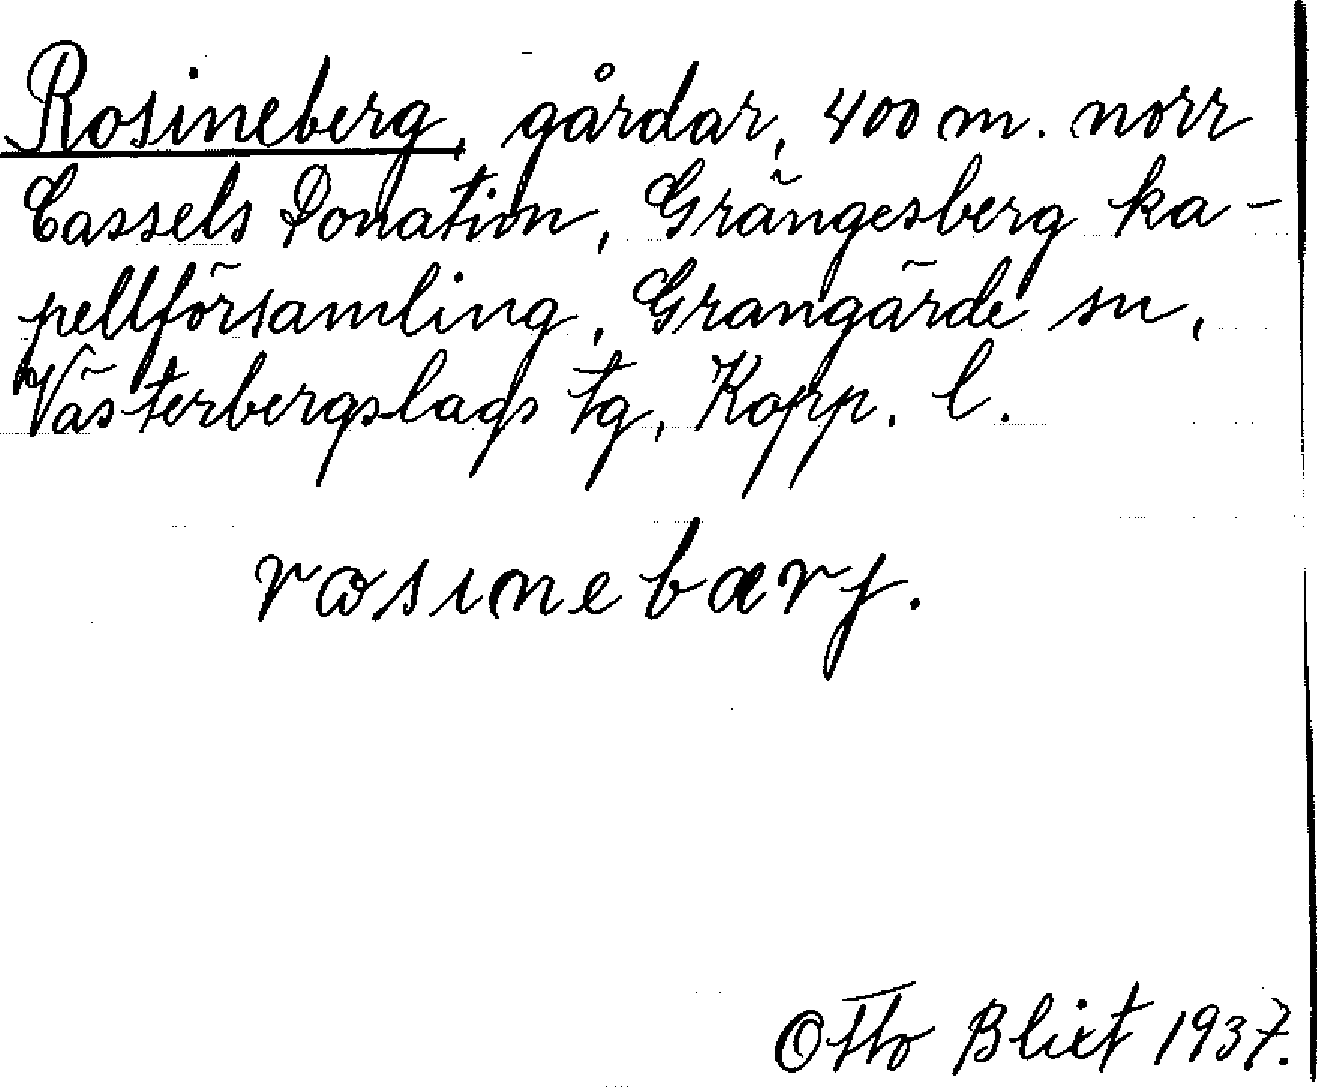 Rosineberg, gårdar, 400 m. norr
Cassels Donation, Grängesberg ka-
pellförsamling, Grangärde sn,
Västerbergslags tg, Kopp. l.
rωsınebærj.
Otto Blixt 1937.